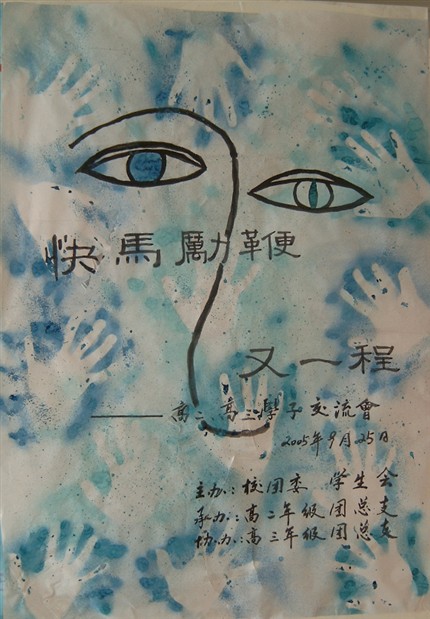 快馬勵鞭
又一程
——高二、高三學子交流會
2005年9月25日
主办:校团委 学生会
承办:高二年级团总支
协办:高三年级团总支